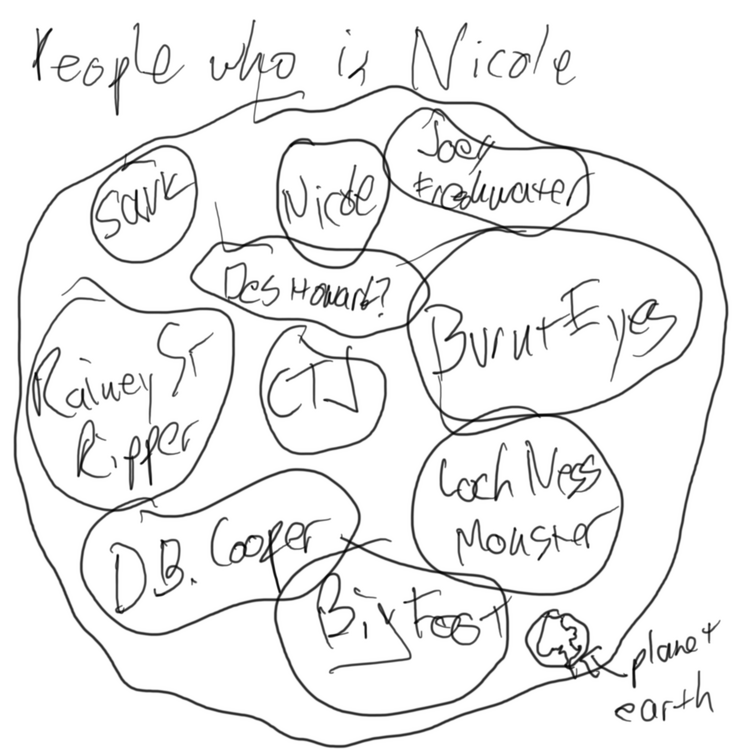 People who is Nicole
Sark
Nicole
Joey
Freshwater
Des Howard?
Burnt Eyes
Rainey St
Ripper
CTJ
Loch Ness
Monster
D.B. Cooper
Big Foot
planet
earth